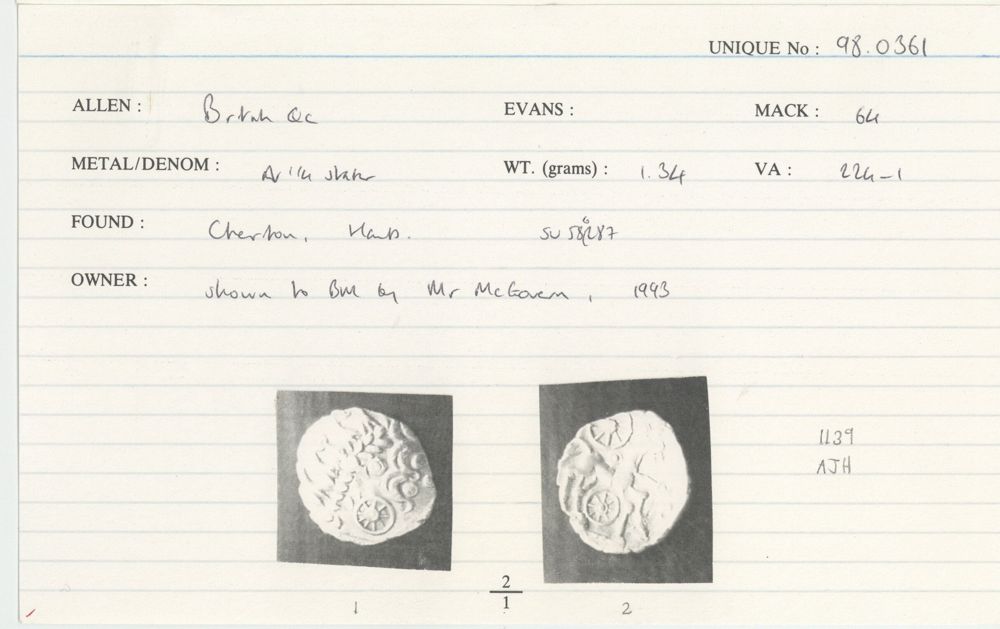 UNIQUE No : 98.0361
ALLEN : British Qc EVANS : MACK : 64
METAL/DENOM : Ar 1/4 stater WT. (grams) : 1.34 VA : 224-1
FOUND : Cheriton, Hants. SU 58
OWNER : shown to BM by Mr McGovern, 1993
1139
AJH
2
1
1 2